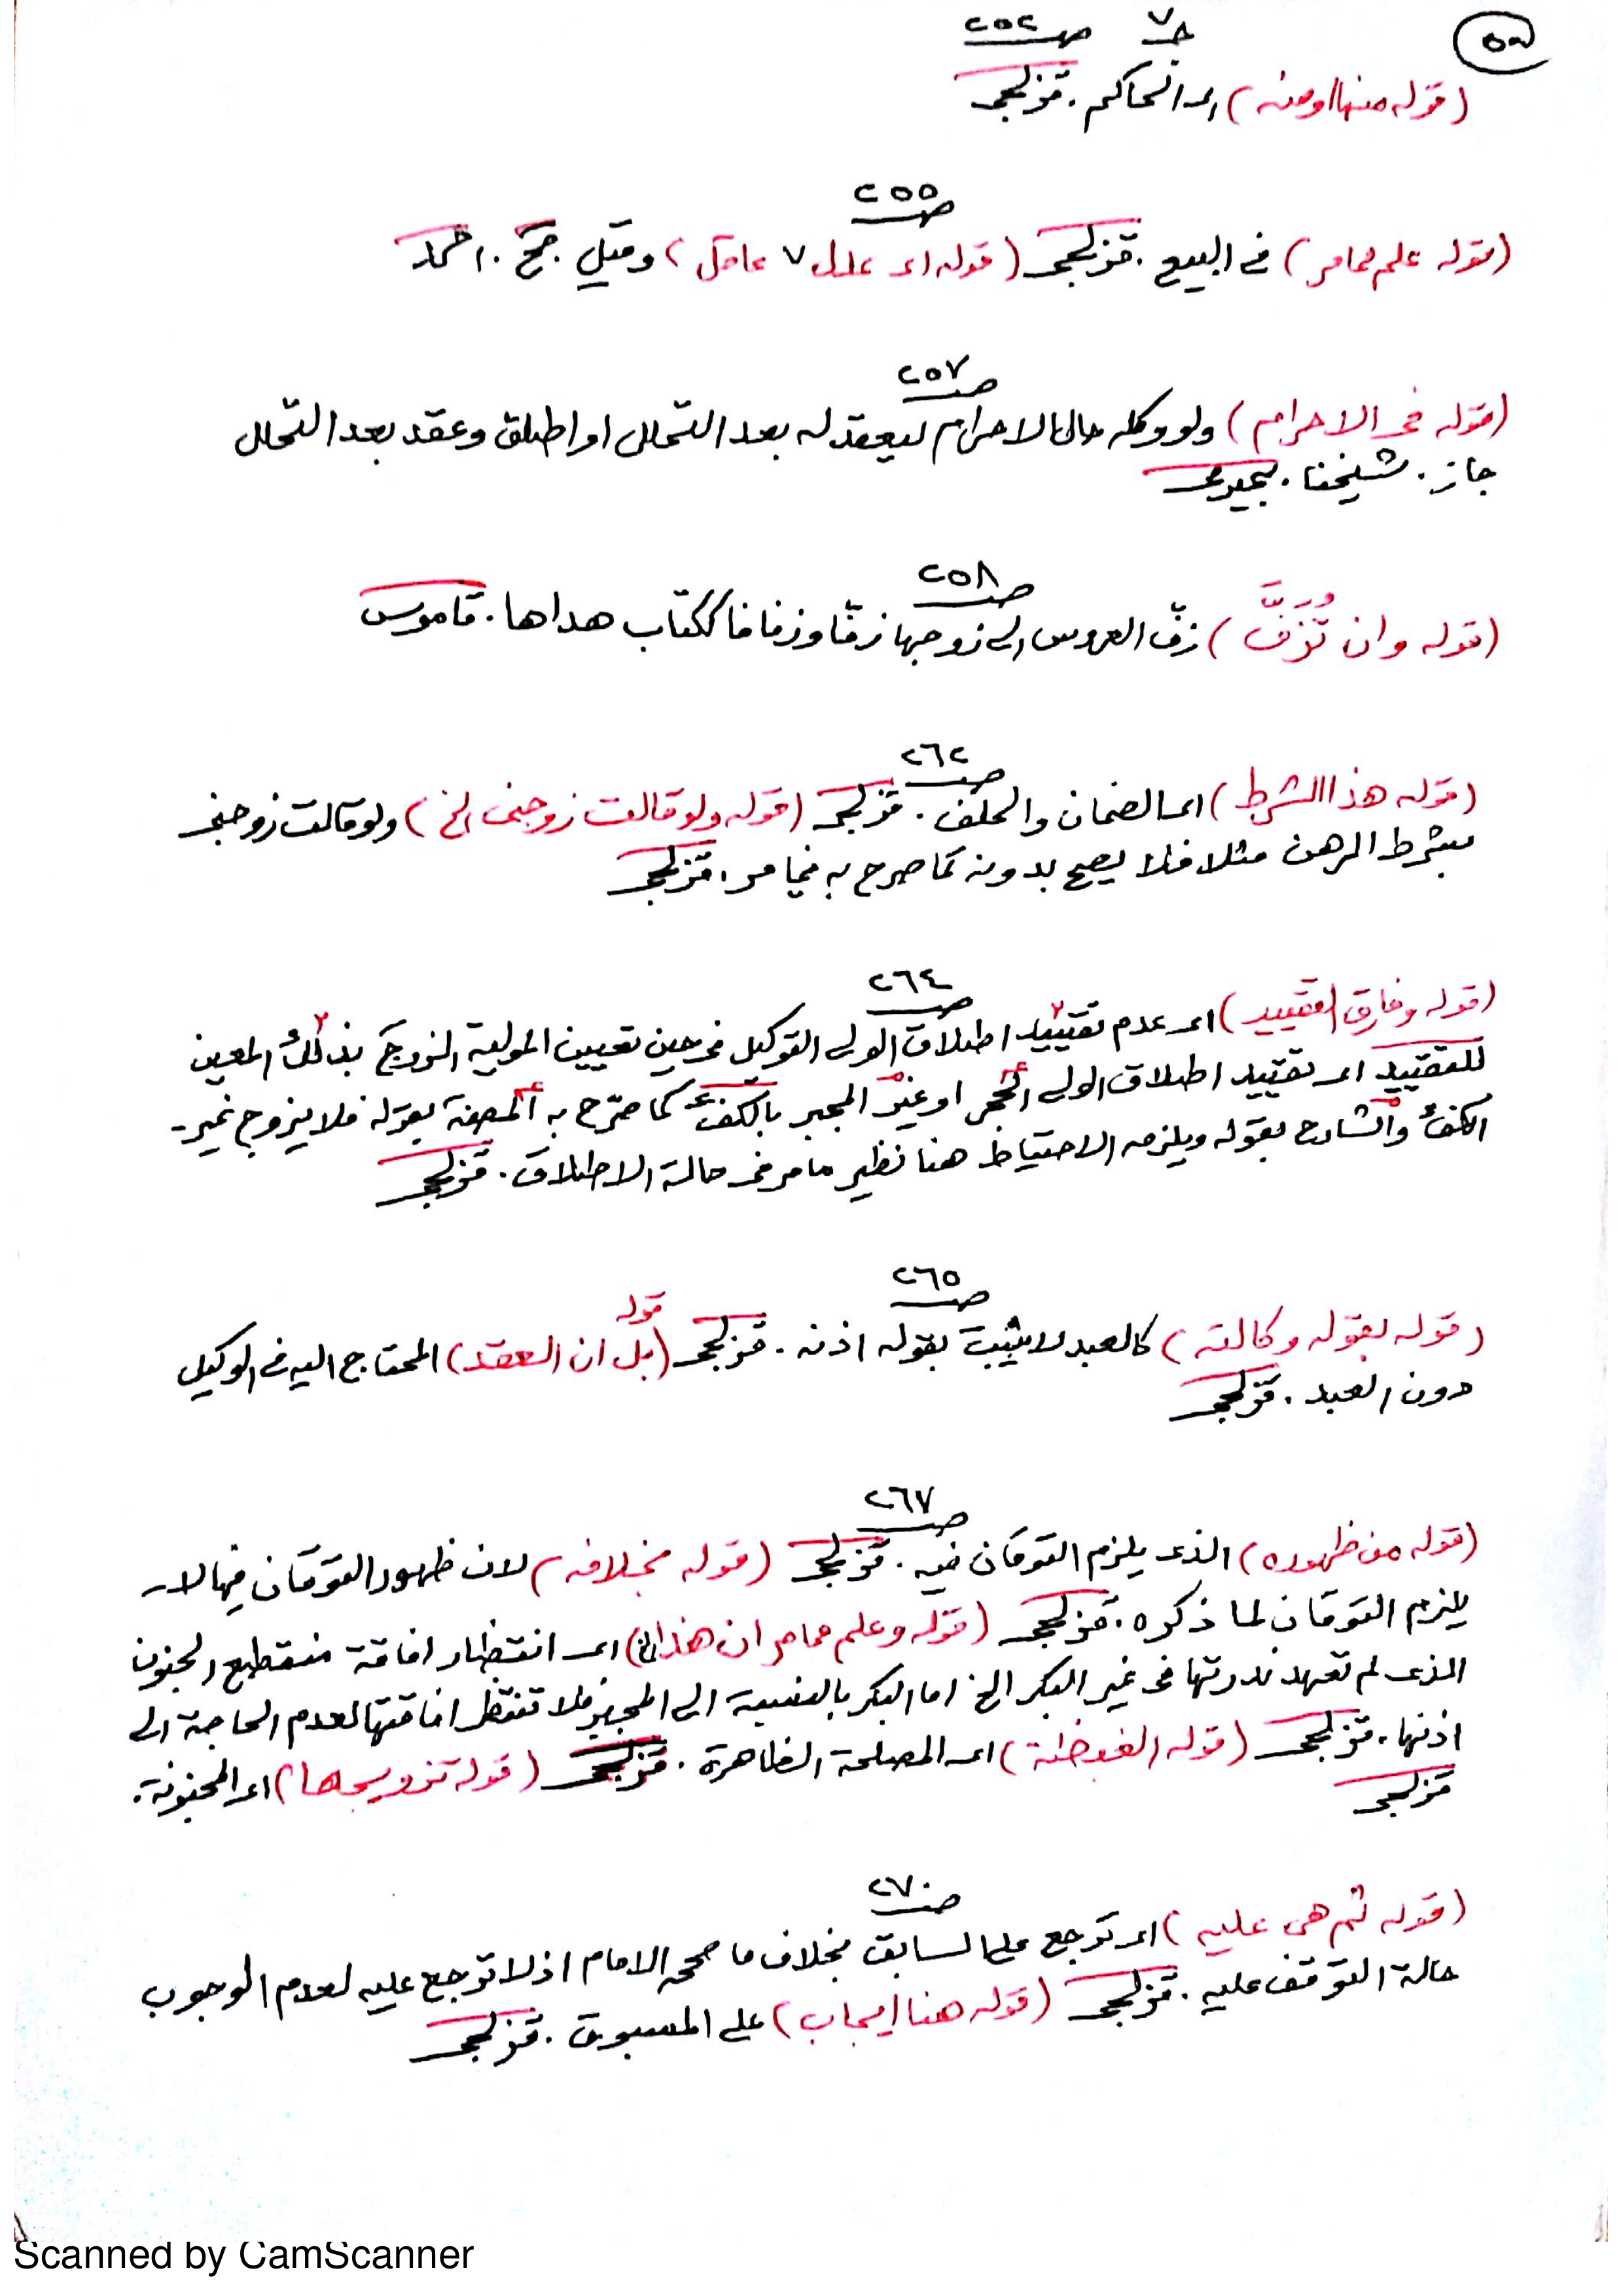 ٥٩
جـ ٧ صـ ٢٥٢
(قوله منها او منه) اى الحاكم. قزلجى
صـ ٢٥٥
(قوله علم مما مر) فى البيع. قزلجى (قوله اى عدل ٧ عاقل) وقيل جمح. احمد
صـ ٢٥٧
(قوله فى الاحرام) ولو وكله حال الاحرام ليعقد له بعد التحلل او اطلق وعقد بعد التحلل
جاز. شيخنا. بجيرمى
صـ ٢٥٨
(قوله وان تُزَفَّ) زفّ العروس الى زوجها زفّا وزفافا ككتاب هداها. قاموس
صـ ٢٦٢
(قوله هذا الشرط) اى الضمان والحلف. قزلجى (قوله ولو قالت زوجنى الخ) ولو قالت زوجنى
بشرط الرهن مثلا فلا يصح بدونه كما صرح به فيما مر. قزلجى
صـ ٢٦٤
(قوله وفارق التقييد) اى عدم تقييد اطلاق الولى التوكيل فى حين تعيين المولية الزوج بذلك المعين
للتقييد اى تقييد اطلاق الولى المجبر او غير المجبر بالكفء كما صرّح به المصنف بقوله فلا يزوج غير
الكفء والشارح بقوله ويلزمه الاحتياط هنا نظير ما مر فى حالة الاطلاق. قزلجى
صـ ٢٦٥
(قوله بقوله وكالته) كالعبد لا يثبت بقوله اذنه. قزلجى (قوله بل ان العقد) المحتاج اليه فى الوكيل
دون العبد. قزلجى
صـ ٢٦٧
(قوله من ظهوره) الذى يلزم التوقان فيه. قزلجى (قوله بخلافه) لان ظهور التوقان فيها لا
يلزم التوقان لما ذكره. قزلجى (قوله وعلم مما مر ان هذا الخ) اى انتظار افاقة متقطع الجنون
الذى لم تعهد ندرتها فى غير البكر الخ اما البكر بالنسبة الى المجبر فلا تنتظر افاقتها لعدم الحاجة الى
اذنها. قزلجى (قوله الغبطة) اى المصلحة الظاهرة. قزلجى (قوله تزويجها) اى المجنونة.
قزلجى
صـ ٢٧٠
(قوله ثم هى عليه) اى ترجع على السابق بخلاف ما صححه الامام اذ لا ترجع عليه لعدم الوجوب
حالة التوقف عليه. قزلجى (قوله هنا ايجاب) على المسبوق. قزلجى
Scanned by CamScanner